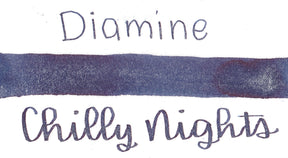 Diamine
Chilly Nights